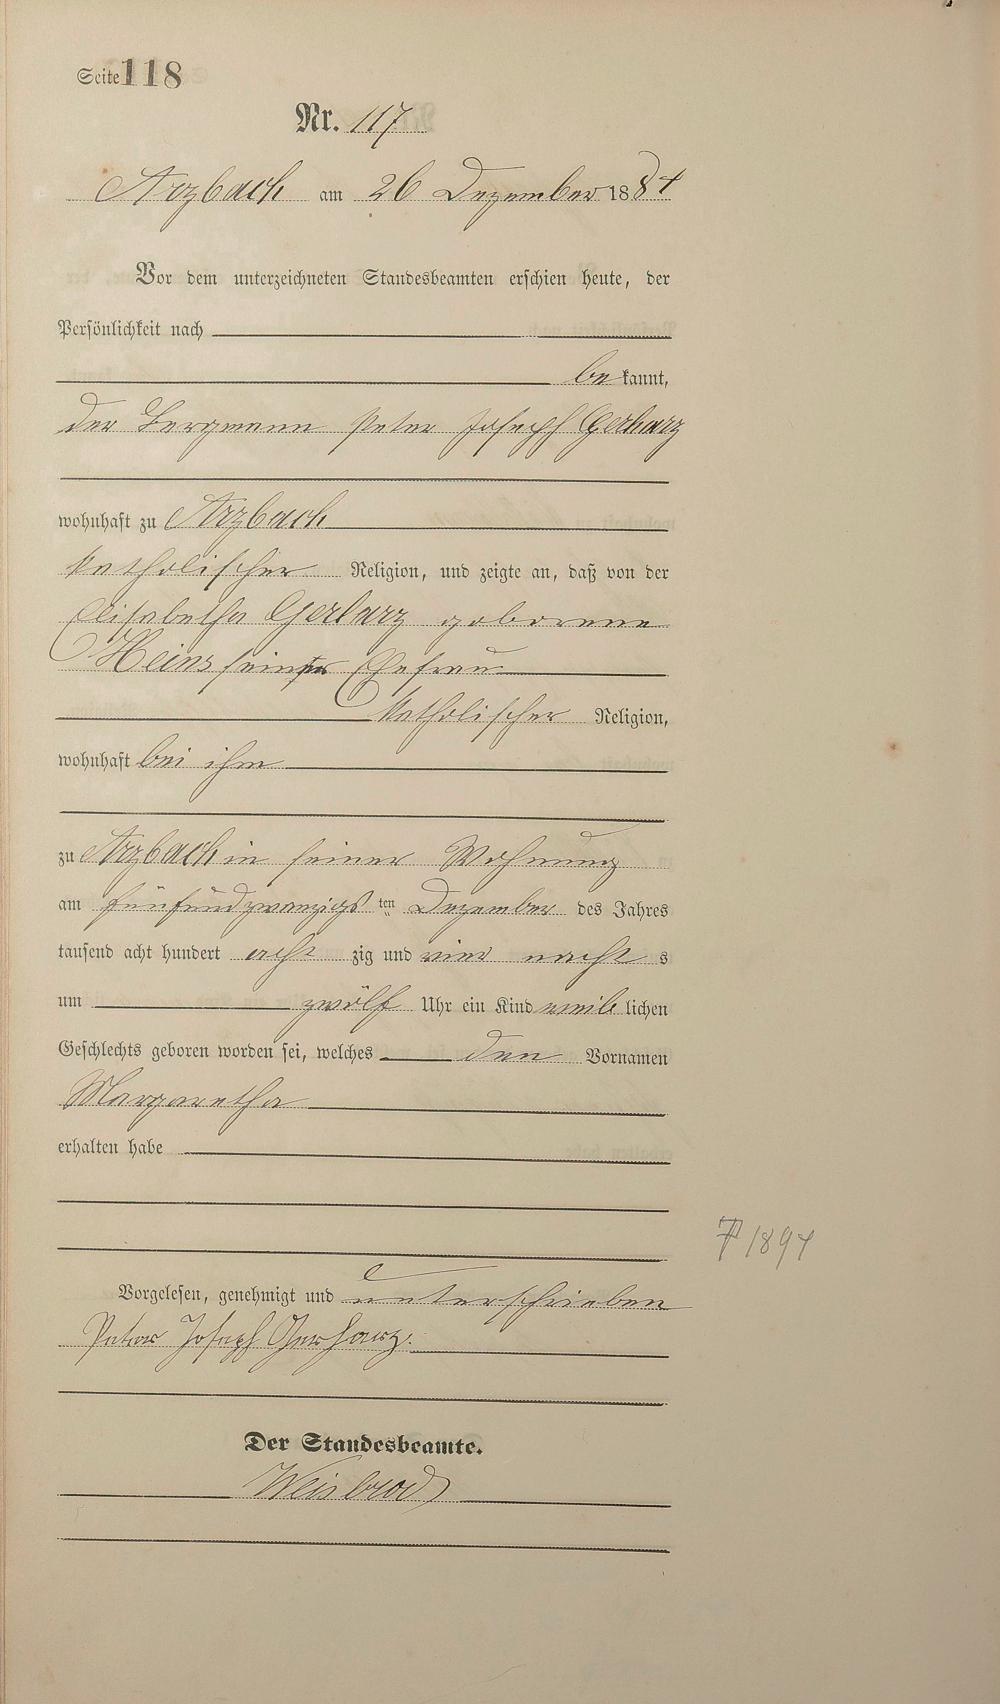 Seite 118
Nr. 117
Arzbach am 26 Dezember 1884
Vor dem unterzeichneten Standesbeamten erschien heute, der
Persönlichkeit nach
be kannt,
der Bergmann Peter Joseph Gerharz
wohnhaft zu Arzbach
katholischer Religion, und zeigte an, daß von der
Elisabetha Gerharz geborene
Heins seiner Ehefrau
katholischer Religion,
wohnhaft bei ihm
zu Arzbach in seiner Wohnung
am fünfundzwanzigs ten Dezember des Jahres
tausend acht hundert acht zig und vier nacht s
um zwölf Uhr ein Kind weib lichen
Geschlechts geboren worden sei, welches den Vornamen
Margaretha
erhalten habe
1894
Vorgelesen, genehmigt und unterschrieben
Peter Joseph Gerharz.
Der Standesbeamte.
Weisbrod